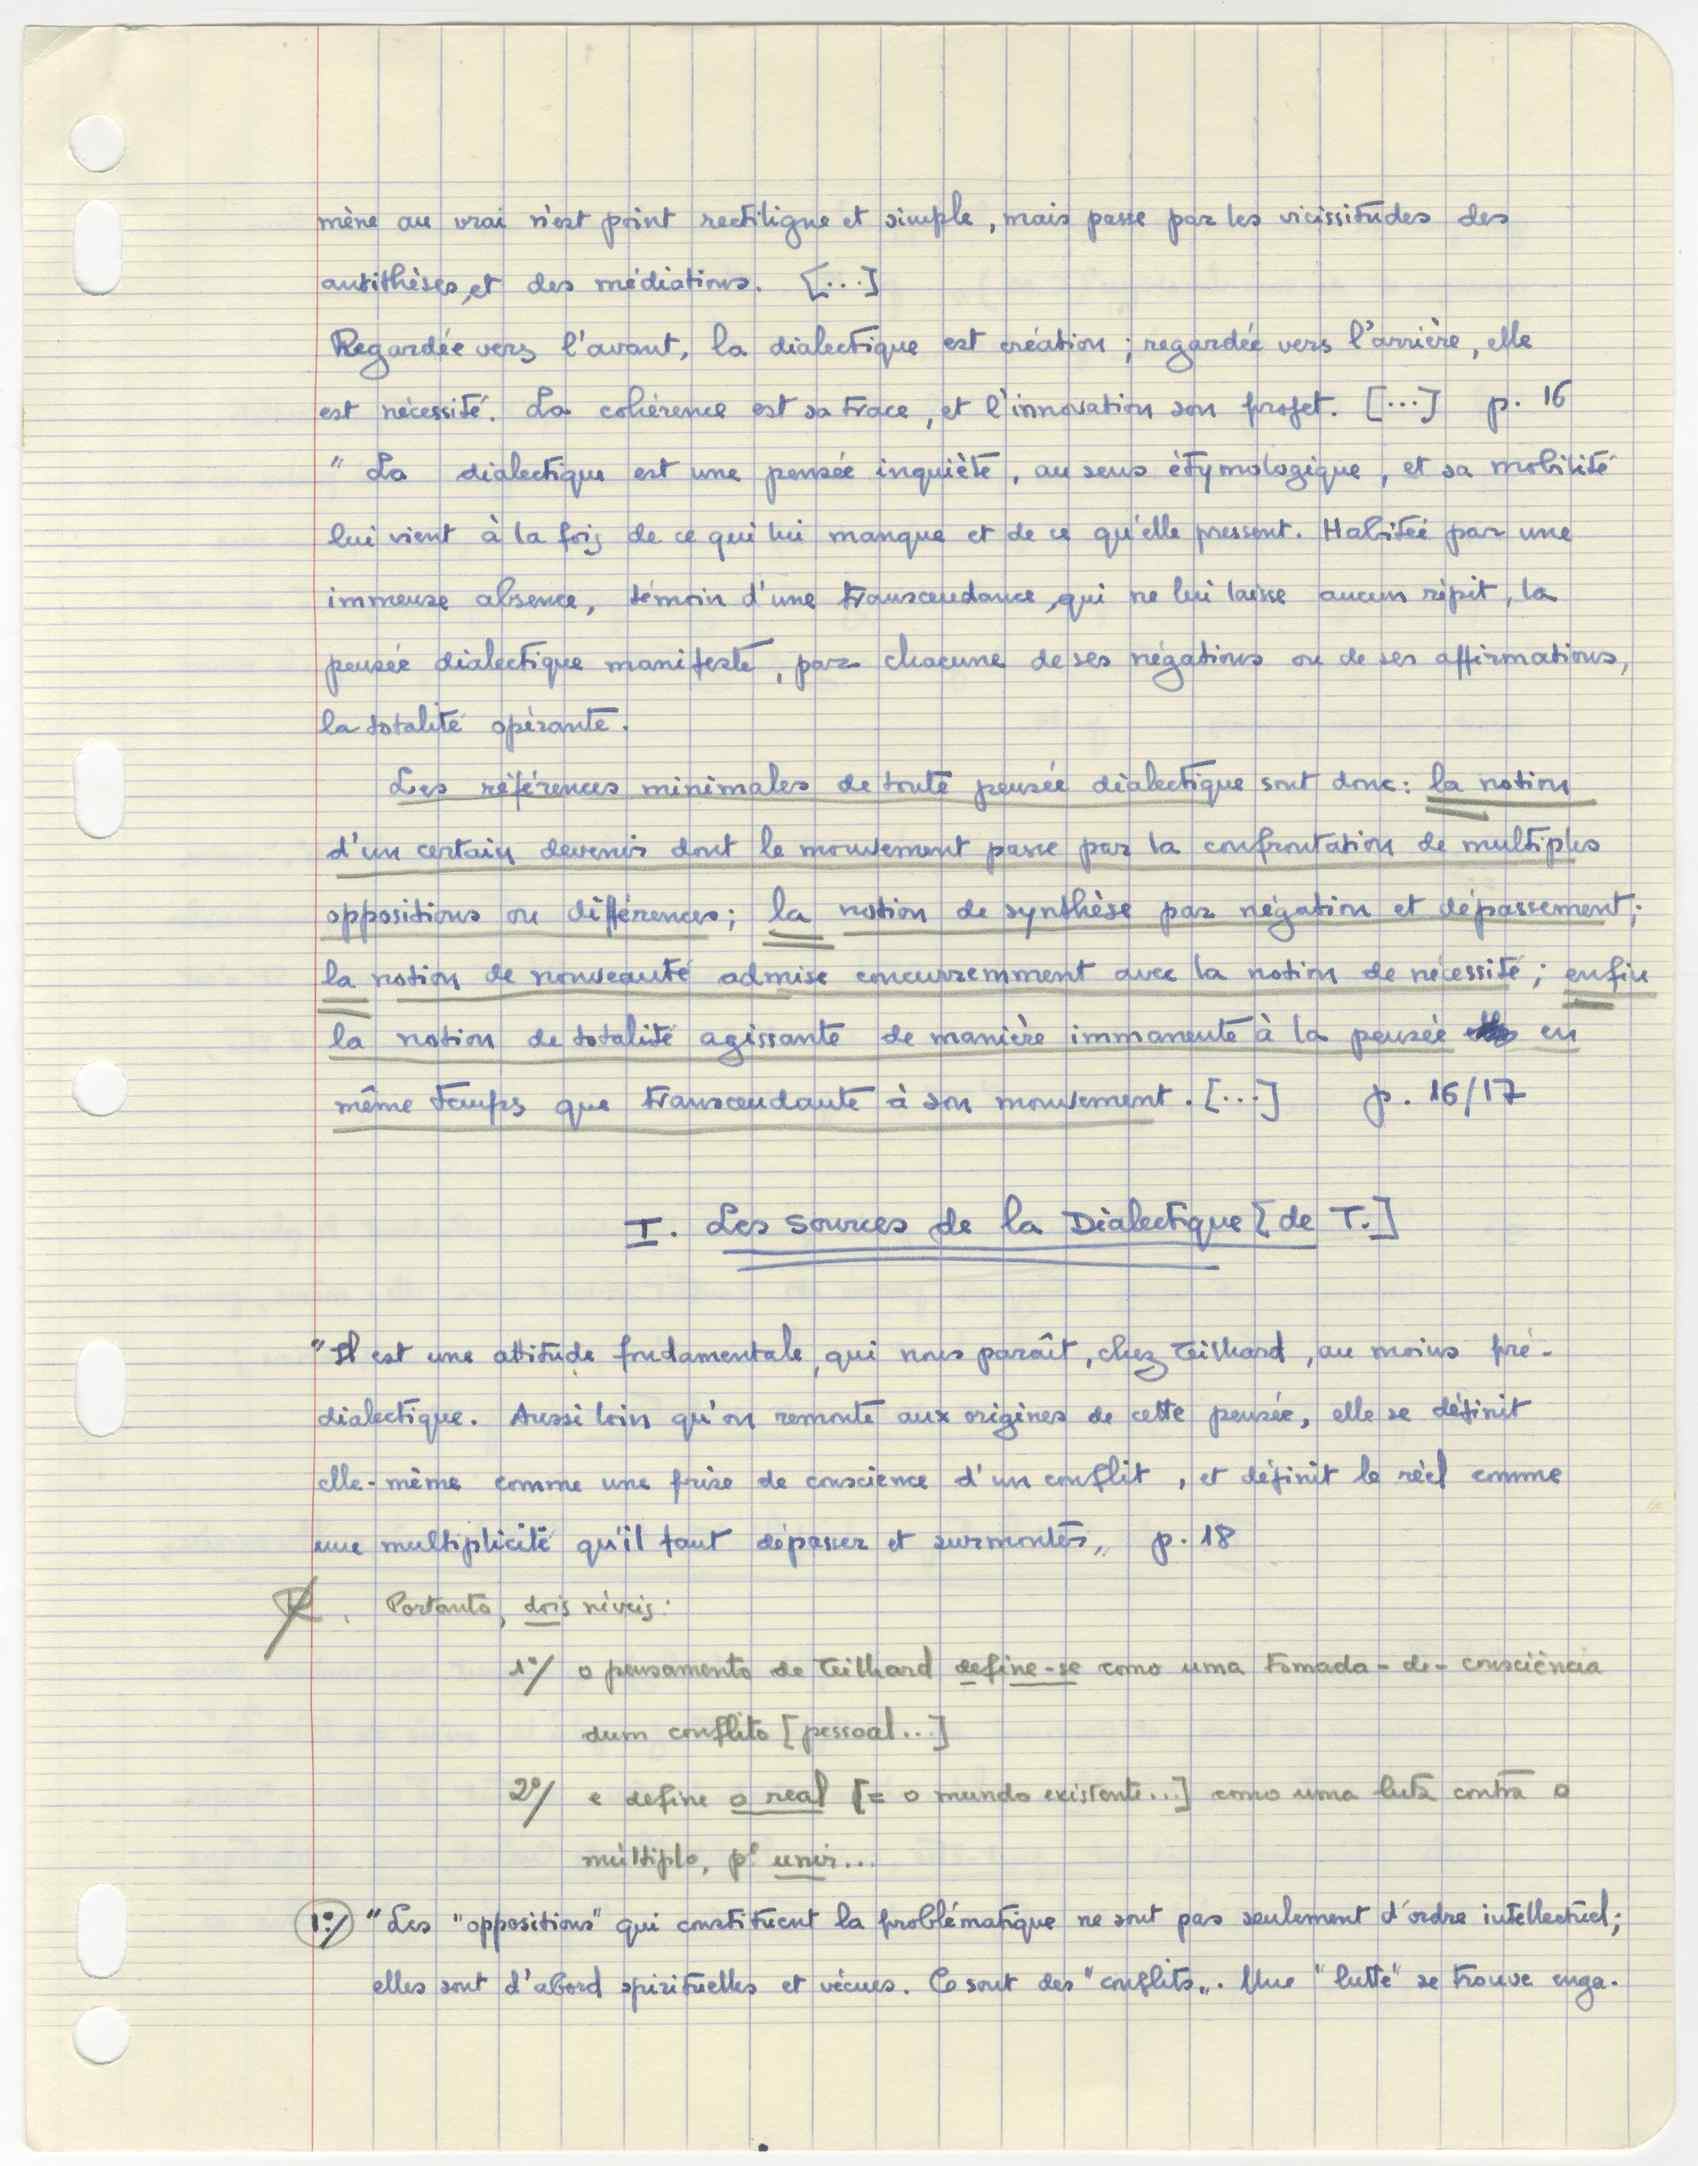 mène au vrai n'est point rectiligne et simple, mais passe par les vicissitudes des
antithèses, et des médiations. [...]
Regardée vers l'avant, la dialectique est création ; regardée vers l'arrière, elle
est nécessité. La cohérence est sa trace, et l'innovation son projet. [...] p. 16
" La dialectique est une pensée inquiète, au sens étymologique, et sa mobilité
lui vient à la fois de ce qui lui manque et de ce qu'elle pressent. Habitée par une
immense absence, témoin d'une transcendance, qui ne lui laisse aucun répit, la
pensée dialectique manifeste, par chacune de ses négations ou de ses affirmations,
la totalité opérante.
Les références minimales de toute pensée dialectique sont donc : la notion
d'un certain devenir dont le mouvement passe par la confrontation de multiples
oppositions ou différences ; la notion de synthèse par négation et dépassement ;
la notion de nouveauté admise concurremment avec la notion de nécessité ; enfin
la notion de totalité agissante de manière immanente à la pensée en
même temps que transcendante à son mouvement. [...] p. 16/17
I. Les Sources de la Dialectique [de T.]
"Il est une attitude fondamentale, qui nous paraît, chez Teilhard, au moins pré-
dialectique. Aussi loin qu'on remonte aux origines de cette pensée, elle se définit
elle-même comme une prise de conscience d'un conflit, et définit le réel comme
une multiplicité qu'il faut dépasser et surmonter„ p. 18
. Portanto, dois níveis :
1º/ o pensamento de Teilhard define-se como uma tomada-de-consciência
dum conflito [pessoal...]
2º/ e define o real [= o mundo existente...] como uma luta contra o
múltiplo, pª unir...
1º/ "Les "oppositions" qui constituent la problématique ne sont pas seulement d'ordre intellectuel ;
elles sont d'abord spirituelles et vécues. Ce sont des "conflits„. Une "lutte" se trouve enga-